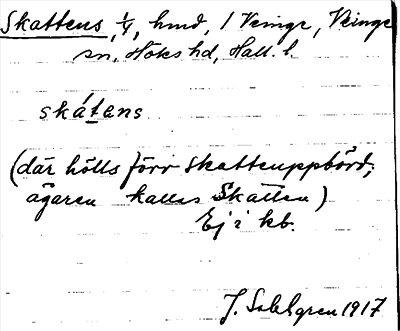 Skattens, 1/4, hmd, 1 Veinge, Veinge
sn, Höks hd, Hall. l.
skátens
(där hölls förr skatteuppbörd;
ägaren kallas Skatten)
Ej i kb.
J. Sahlgren 1917